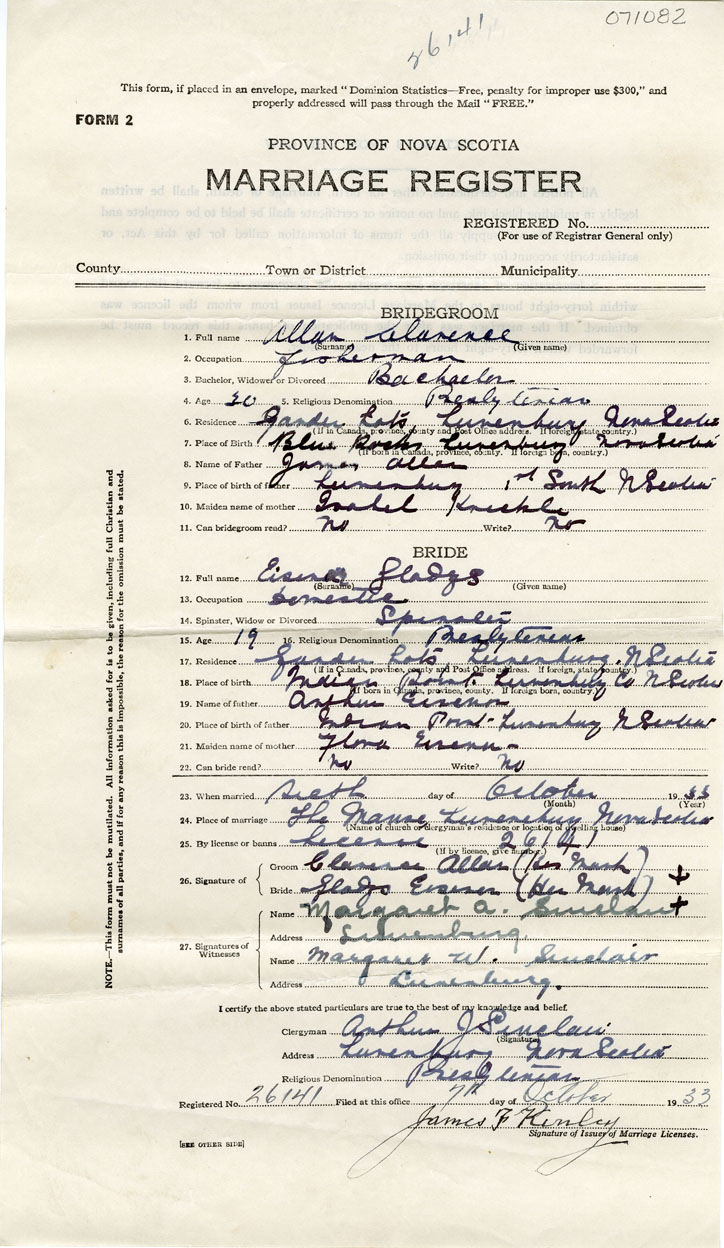 071082
26141
This form, if placed in an envelope, marked "Dominion Statistics—Free, penalty for improper use $300," and
properly addressed will pass through the Mail "FREE."
FORM 2
PROVINCE OF NOVA SCOTIA
MARRIAGE REGISTER
REGISTERED No.
(For use of Registrar General only)
County Town or District Municipality
BRIDEGROOM
1. Full name Allan Clarence
(Surname) (Given name)
2. Occupation Fisherman
3. Bachelor, Widower or Divorced Bachelor
4. Age 30 5. Religious Denomination Presbyterian
6. Residence Garden Lots, Lunenburg Nova Scotia
(If in Canada, province, county and Post Office address. If foreign, state country.)
7. Place of Birth Blue Rocks Lunenburg Nova Scotia
(If born in Canada, province, county. If foreign born, country.)
8. Name of Father James Allan
9. Place of birth of father Lunenburg South N Scotia
10. Maiden name of mother Isabel Knickle
11. Can bridegroom read? No Write? No
BRIDE
12. Full name Eisenor Gladys
(Surname) (Given name)
13. Occupation Domestic
14. Spinster, Widow or Divorced Spinster
15. Age 19 16. Religious Denomination Presbyterian
17. Residence Garden Lots Lunenburg. N Scotia
(If in Canada, province, county and Post Office address. If foreign, state country.)
18. Place of birth Indian Point Lunenburg Co N Scotia
(If born in Canada, province, county. If foreign born, country.)
19. Name of father Arthur Eisenor
20. Place of birth of father Indian Point Lunenburg N Scotia
21. Maiden name of mother Flora Eisenor
22. Can bride read? No Write? No
23. When married Sixth day of October 1933
(Month) (Year)
24. Place of marriage The Manse Lunenburg Nova Scotia
(Name of church or clergyman's residence or location of dwelling house)
25. By license or banns Licence 26141
(If by licence, give number.)
26. Signature of Groom Clarence Allan (His Mark) +
Bride Gladys Eisenor (Her Mark) +
27. Signatures of Witnesses
Name Margaret A. Sinclair
Address Lunenburg
Name Margaret W. Sinclair
Address Lunenburg.
I certify the above stated particulars are true to the best of my knowledge and belief.
Clergyman Arthur J Sinclair
(Signature)
Address Lunenburg Nova Scotia
Religious Denomination Presbyterian
Registered No. 26141 Filed at this office 7th day of October 1933
James F Kinley
Signature of Issuer of Marriage Licenses.
[SEE OTHER SIDE]
NOTE.—This form must not be mutilated. All information asked for is to be given, including full Christian and
surnames of all parties, and if for any reason this is impossible, the reason for the omission must be stated.